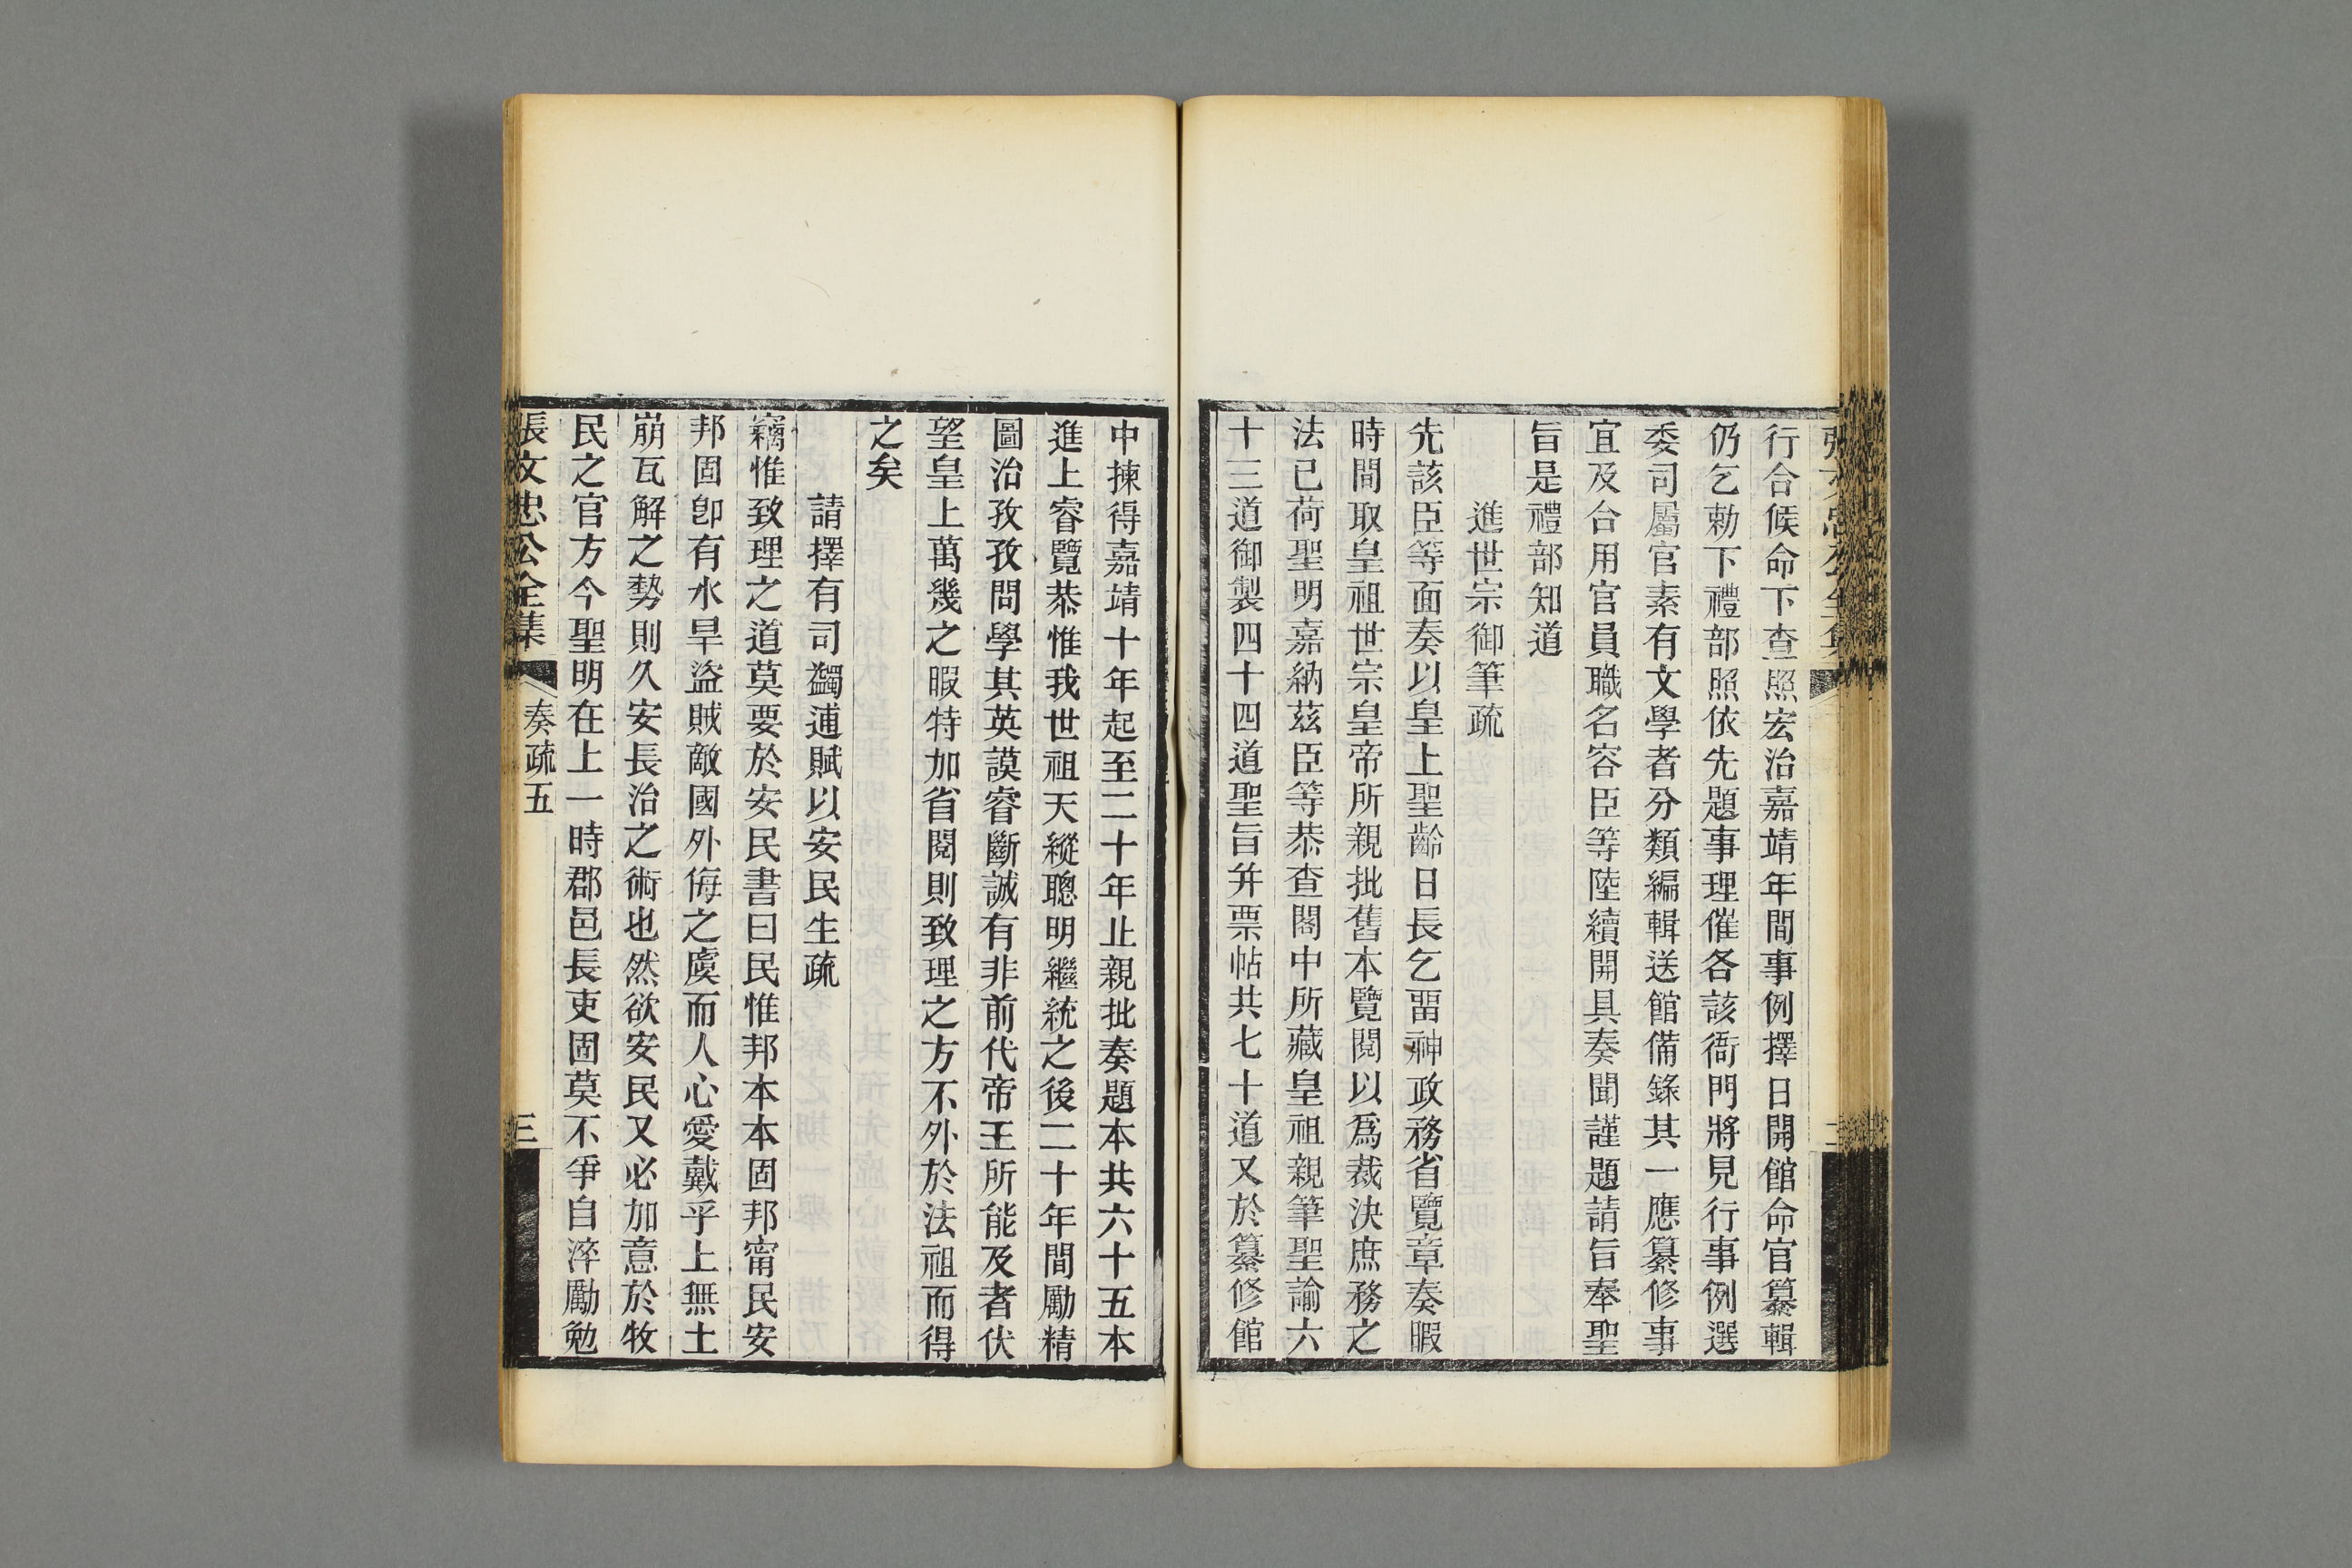 行合候命下查照宏治嘉靖年間事例擇日開館命官纂輯
仍乞勅下禮部照依先題事理催各該衙門將見行事例選
委司屬官素有文學者分類編輯送館備錄其一應纂修事
宜及合用官員職名容臣等陸續開具奏聞謹題請旨奉聖
旨是禮部知道
進世宗御筆疏
先該臣等面奏以皇上聖齡日長乞畱神政務省覽章奏暇
時間取皇祖世宗皇帝所親批舊本覽閱以爲裁決庶務之
法已荷聖明嘉納茲臣等恭查閣中所藏皇祖親筆聖諭六
十三道御製四十四道聖旨幷票帖共七十道又於纂修館
中揀得嘉靖十年起至二十年止親批奏題本共六十五本
進上睿覽恭惟我世祖天縱聰明繼統之後二十年間勵精
圖治孜孜問學其英謨睿斷誠有非前代帝王所能及者伏
望皇上萬幾之暇特加省閱則致理之方不外於法祖而得
之矣
請擇有司蠲逋賦以安民生疏
竊惟致理之道莫要於安民書曰民惟邦本本固邦甯民安
邦固卽有水旱盜賊敵國外侮之虞而人心愛戴乎上無土
崩瓦解之勢則久安長治之術也然欲安民又必加意於牧
民之官方今聖明在上一時郡邑長吏固莫不爭自淬勵勉
張文忠公全集 奏疏五 三